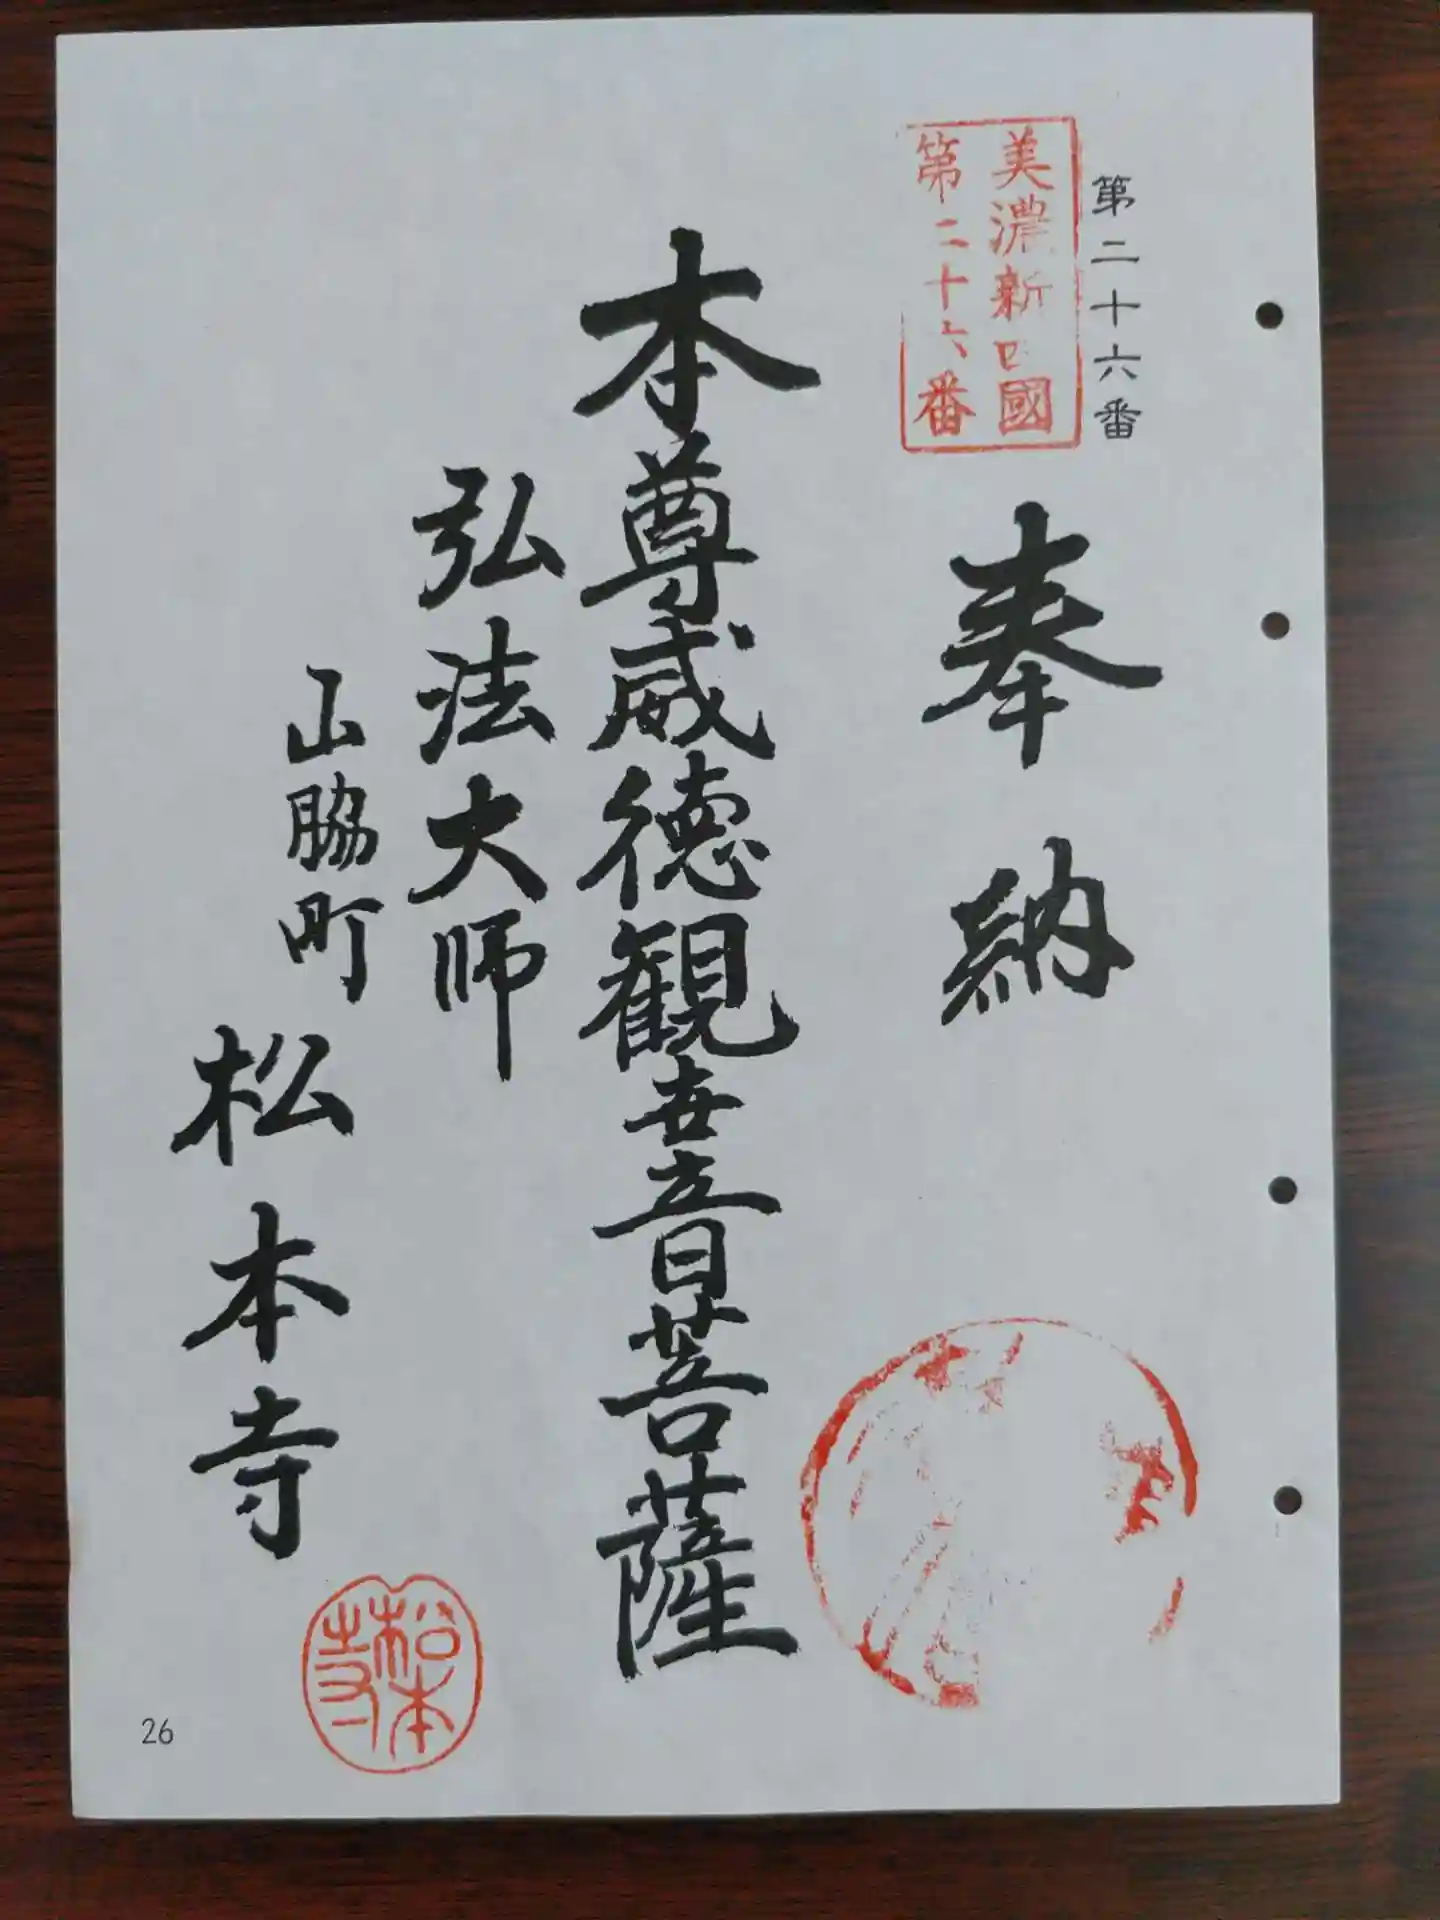 第二十六番
美濃新四國
第二十六番
奉納
本尊威徳観世音菩薩
弘法大师
山脇町
松本寺
松本
寺
26